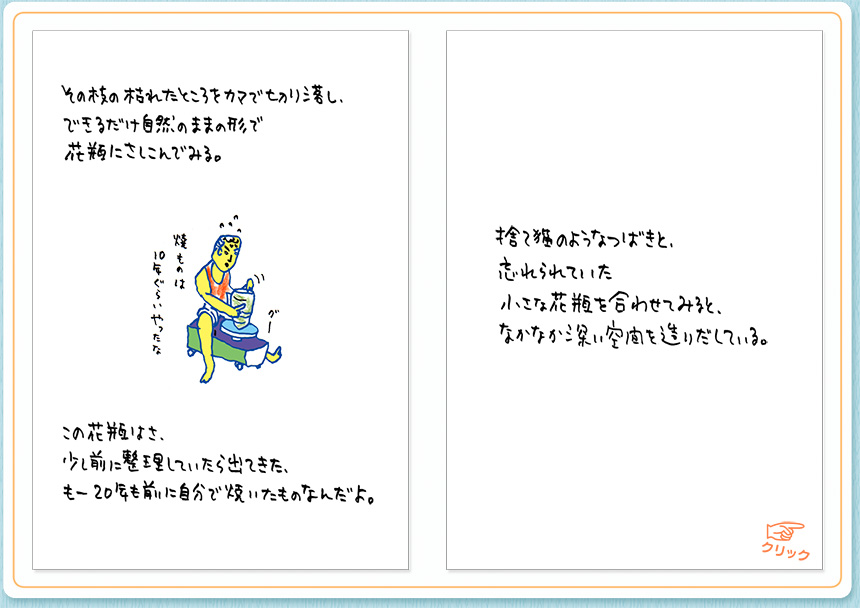 その枝の枯れたところをカマで切り落し、
できるだけ自然のままの形で
花瓶にさしこんでみる。
焼ものは
10年ぐらいやったな
グー
この花瓶はさ、
少し前に整理していたら出てきた、
もー20年も前に自分で焼いたものなんだよ。
捨て猫のようなつばきと、
忘れられていた
小さな花瓶を合わせてみると、
なかなか深い空間を造りだしている。
クリック